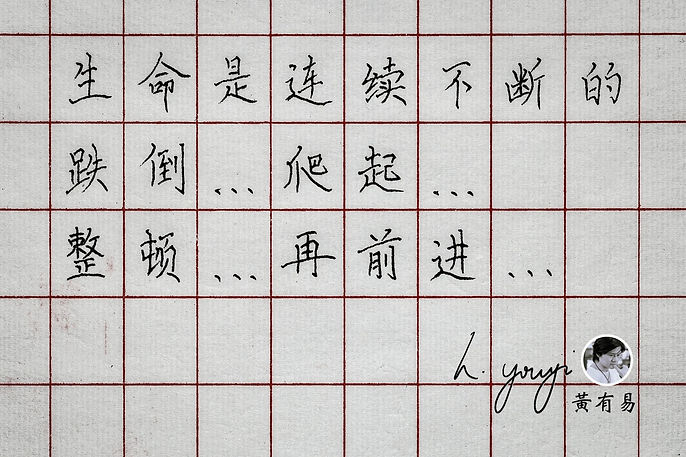 生命是连续不断的
跌倒...爬起...
整顿...再前进...
h. youyi
黃有易